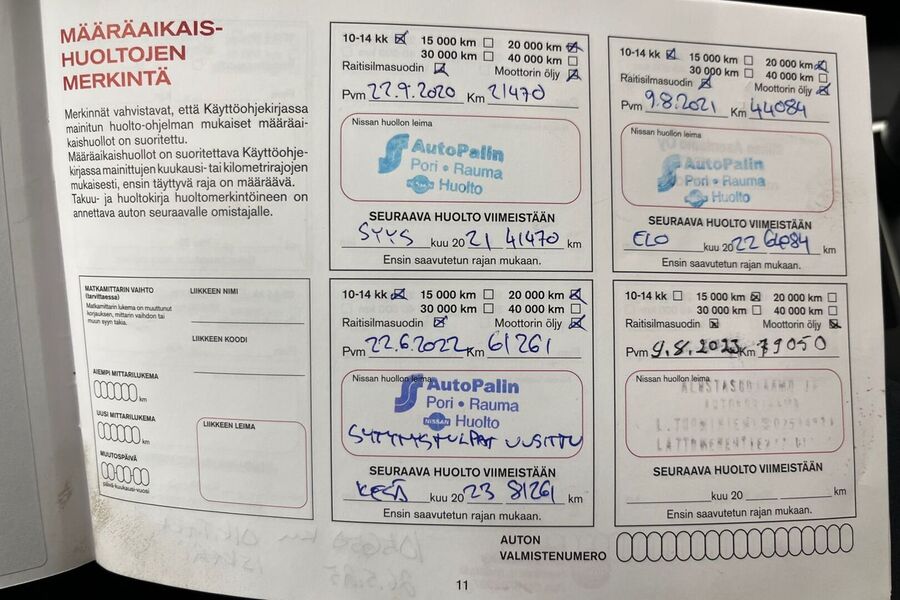 MÄÄRÄAIKAIS-
HUOLTOJEN
MERKINTÄ
Merkinnät vahvistavat, että Käyttöohjekirjassa
mainitun huolto-ohjelman mukaiset määräai-
kaishuollot on suoritettu.
Määräaikaishuollot on suoritettava Käyttöohje-
kirjassa mainittujen kuukausi- tai kilometrirajojen
mukaisesti, ensin täyttyvä raja on määräävä.
Takuu- ja huoltokirja huoltomerkintöineen on
annettava auton seuraavalle omistajalle.
MATKAMITTARIN VAIHTO
(tarvittaessa)
Matkamittarin lukema on muuttunut
korjauksen, mittarin vaihdon tai
muun syyn takia.
AIEMPI MITTARILUKEMA
km
UUSI MITTARILUKEMA
km
MUUTOSPÄIVÄ
päivä-kuukausi-vuosi
LIIKKEEN NIMI
LIIKKEEN KOODI
LIIKKEEN LEIMA
10-14 kk ☒ 15 000 km ☐ 20 000 km ☒
30 000 km ☐ 40 000 km ☐
Raitisilmasuodin ☒ Moottorin öljy ☒
Pvm 22.9.2020 Km 21470
Nissan huollon leima
AutoPalin
Pori • Rauma
NISSAN Huolto
SEURAAVA HUOLTO VIIMEISTÄÄN
SYYS kuu 20 21 41470 km
Ensin saavutetun rajan mukaan.
10-14 kk ☒ 15 000 km ☐ 20 000 km ☒
30 000 km ☐ 40 000 km ☐
Raitisilmasuodin ☒ Moottorin öljy ☒
Pvm 9.8.2021 Km 44084
Nissan huollon leima
AutoPalin
Pori • Rauma
Huolto
SEURAAVA HUOLTO VIIMEISTÄÄN
ELO kuu 20 22 64084 km
Ensin saavutetun rajan mukaan.
10-14 kk ☒ 15 000 km ☐ 20 000 km ☒
30 000 km ☐ 40 000 km ☐
Raitisilmasuodin ☒ Moottorin öljy ☒
Pvm 22.6.2022 Km 61261
Nissan huollon leima
AutoPalin
Pori • Rauma
NISSAN Huolto
SYTYTYSTULPAT UUSITTU
SEURAAVA HUOLTO VIIMEISTÄÄN
KESÄ kuu 20 23 81261 km
Ensin saavutetun rajan mukaan.
10-14 kk ☐ 15 000 km ☒ 20 000 km ☐
30 000 km ☐ 40 000 km ☐
Raitisilmasuodin ☒ Moottorin öljy ☒
Pvm 9.8.2023 Km 79050
Nissan huollon leima
SEURAAVA HUOLTO VIIMEISTÄÄN
kuu 20 km
Ensin saavutetun rajan mukaan.
AUTON
VALMISTENUMERO
11